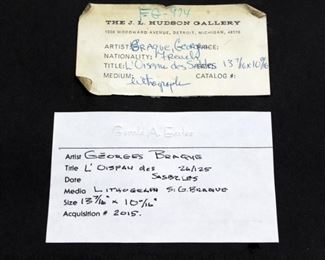 FG-974
THE J. L. HUDSON GALLERY
1206 WOODWARD AVENUE, DETROIT, MICHIGAN, 48226
ARTIST: Braque, Georges PRICE:
NATIONALITY: French
TITLE: L'Oiseau des Sables 13 7/16 x 10 9/16
MEDIUM: lithograph CATALOG #:
Artist GEORGES BRAQUE
Title L'OISEAU des 26/125
Date SASBLES
Media LITHOGRAPH SIG. BRAQUE
Size 13 7/16" x 10 10/16"
Acquisition # 2015.